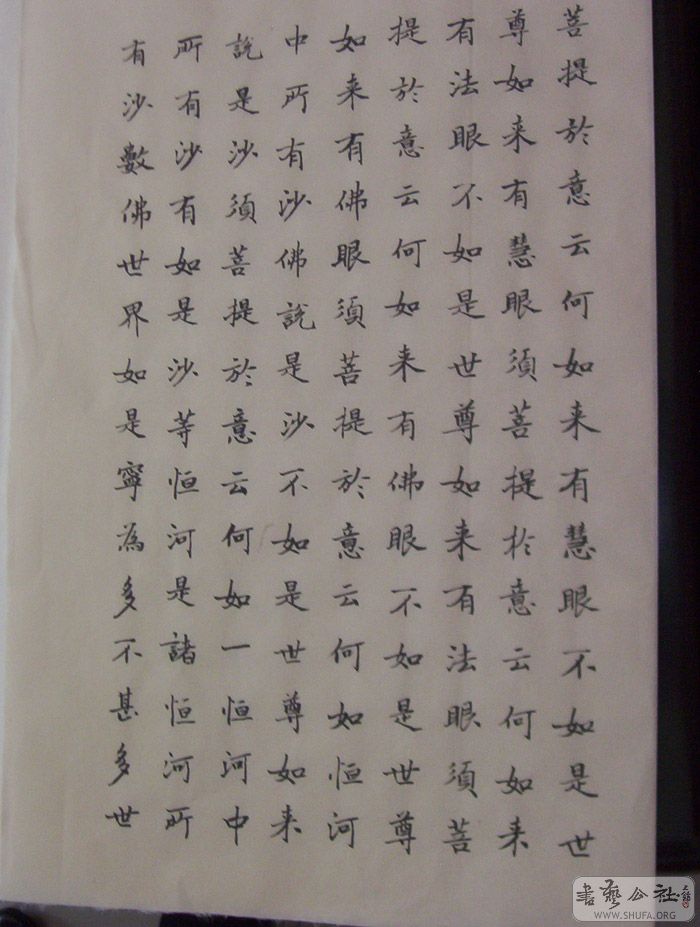 菩提於意云何如来有慧眼不如是世
尊如来有慧眼須菩提於意云何如来
有法眼不如是世尊如来有法眼須菩
提於意云何如来有佛眼不如是世尊
如来有佛眼須菩提於意云何如恒河
中所有沙佛説是沙不如是世尊如来
説是沙須菩提於意云何如一恒河中
所有沙有如是沙等恒河是諸恒河所
有沙數佛世界如是寧為多不甚多世
書藝公社
WWW.SHUFA.ORG